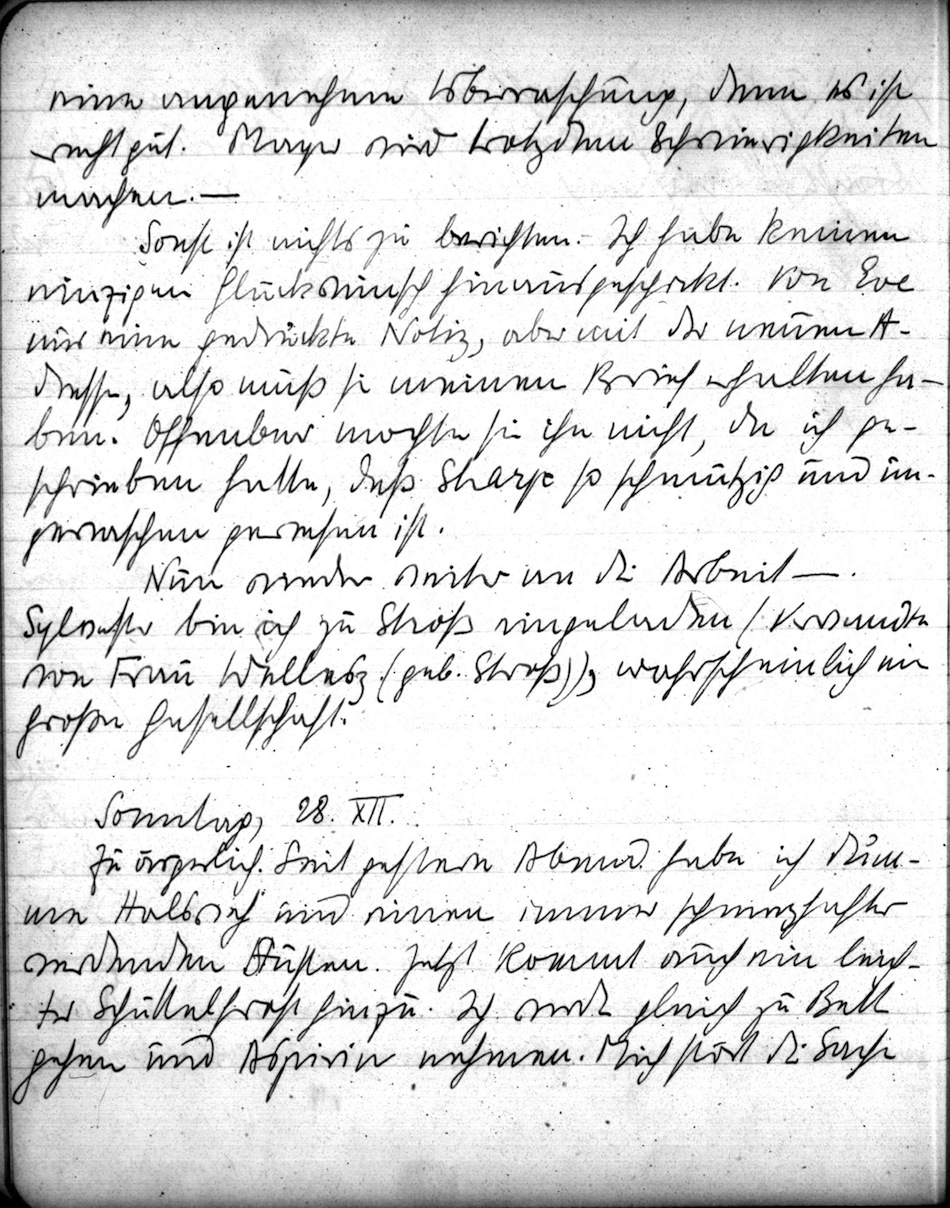 eine angenehme Überraschung, denn es ist
recht gut. Mayer wird trotzdem Schwierigkeiten
machen. —
Sonst ist nichts zu berichten. – Ich habe keinen
einzigen Glückwunsch hinausgeschickt. Von Eve
nur eine gedruckte Notiz, aber mit der neuen A-
dresse, also muß sie meinen Brief erhalten ha-
ben. Offenbar mochte sie ihn nicht, da ich ge-
schrieben hatte, daß Sharpe so schmutzig und un-
gewaschen gewesen ist.
Nun wieder weiter an die Arbeit —.
Sylvester bin ich zu Stroß eingeladen (Verwandte
von Frau Wellesz (geb. Stroß)), wahrscheinlich ein
große Gesellschaft.
Sonntag, 28. XII.
Zu ärgerlich. Seit gestern Abend habe ich dum-
me Halsweh und einen immer schmerzhafter
werdenden Husten. Jetzt kommt auch ein leich-
ter Schüttelfrost hinzu. Ich werde gleich zu Bett
gehen und Aspirin nehmen. Mich stört die Sache